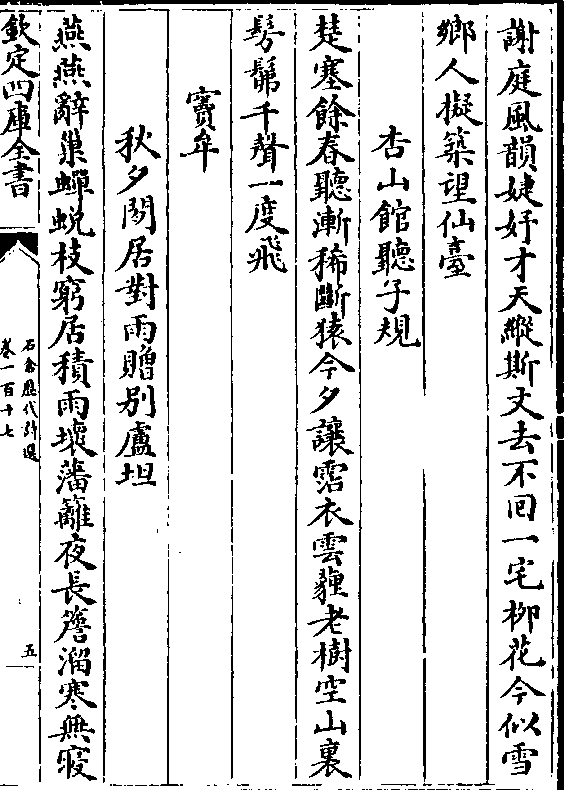 謝庭風韻婕妤才天縱斯文去不回一宅柳花今似雪
鄉人擬築望仙臺
杏山館聽子規
楚塞餘春聽漸稀斷猿今夕讓霑衣雲薶老樹空山裏
髣髴千聲一度飛
竇牟
秋夕閑居對雨贈別盧坦
燕燕辭巢蟬蛻枝窮居積雨壞藩籬夜長簷溜寒無寢
欽定四庫全書
石倉歷代詩選
卷一百十七
五